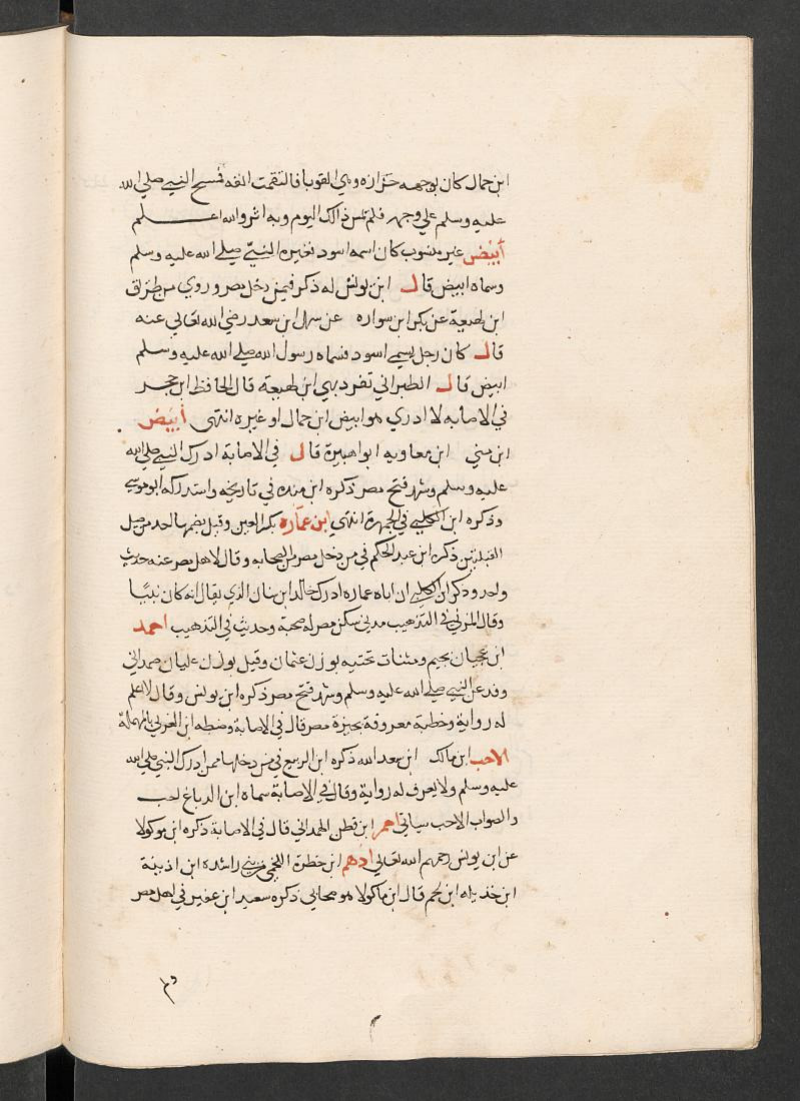 ابن حمال كان بوجهه حزازه وهي القوبا فالتقمت انفه فمسح النبي صلي الله
عليه وسلم علي وجهه فلم تمس ذالك اليوم وبه اثر والله اعلم
أبيض غير منسوب كان اسمه اسود فغيره النبي صلي الله عليه وسلم
وسماه ابيض قال ابن يونس له ذكر فيمن دخل مصر وروي من طريق
ابن لهيعة عن بكر ابن سواره عن سهل ابن سعد رضي الله تعالي عنه
قال كان رجل يسمي اسود فسماه رسول الله صلي الله عليه وسلم
ابيض قال الطبراني تفرد به ابن لهيعة قال الحافظ ابن حجر
في الاصابه لا ادري هو ابيض ابن حمال او غيره انتهى أبيض
ابن هني ابن معاويه ابو هبيرة قال في الاصابة ادرك النبي صلي الله
عليه وسلم وشهد فتح مصر ذكره ابن منده في تاريخه واستدركه ابو موسي
وذكره ابن الكلبي في الجمهرة انتهي ابن عماره بكسر العين وقيل بضمها احد من صلي
القبلتين ذكره ابن عبد الحكم في من دخل مصر من الصحابه وقال لاهل مصر عنه حديث
واحد وذكر ابن الكلبي ان اباه عماره ادرك خالد ابن سنان الذي يقال انه كان نبيا
وقال المزني في التذهيب مدني سكن مصر له صحبة وحديث في التذهيب احمد
ابن عجيان بجيم ومثنات تحتيه بوزن عثمان وقيل بوزن عليان همداني
وفد عن النبي صلي الله عليه وسلم وشهد فتح مصر ذكره ابن يونس وقال لا اعلم
له رواية وخطته معروفة بجيزة مصر قال في الاصابة وضبطه ابن الفرات بالمهملة
الاحب ابن مالك ابن سعد الله ذكره ابن الربيع في من دخلها ممن ادرك النبي صلي الله
عليه وسلم ولا يعرف له رواية وقال في الاصابة سماه ابن الدباغ لحب
والصواب الاحب سياتي احمر ابن قطن الهمداني قال في الاصابة ذكره ابن موكولا
عن ابن يونس رحمهم الله تعالي ادهم ابن حظرة اللخمي من بني راشده ابن اذينة
ابن خديله ابن لخم قال ابن ماكولا هو صحابي ذكره سعيد ابن عفير في اهل مصر